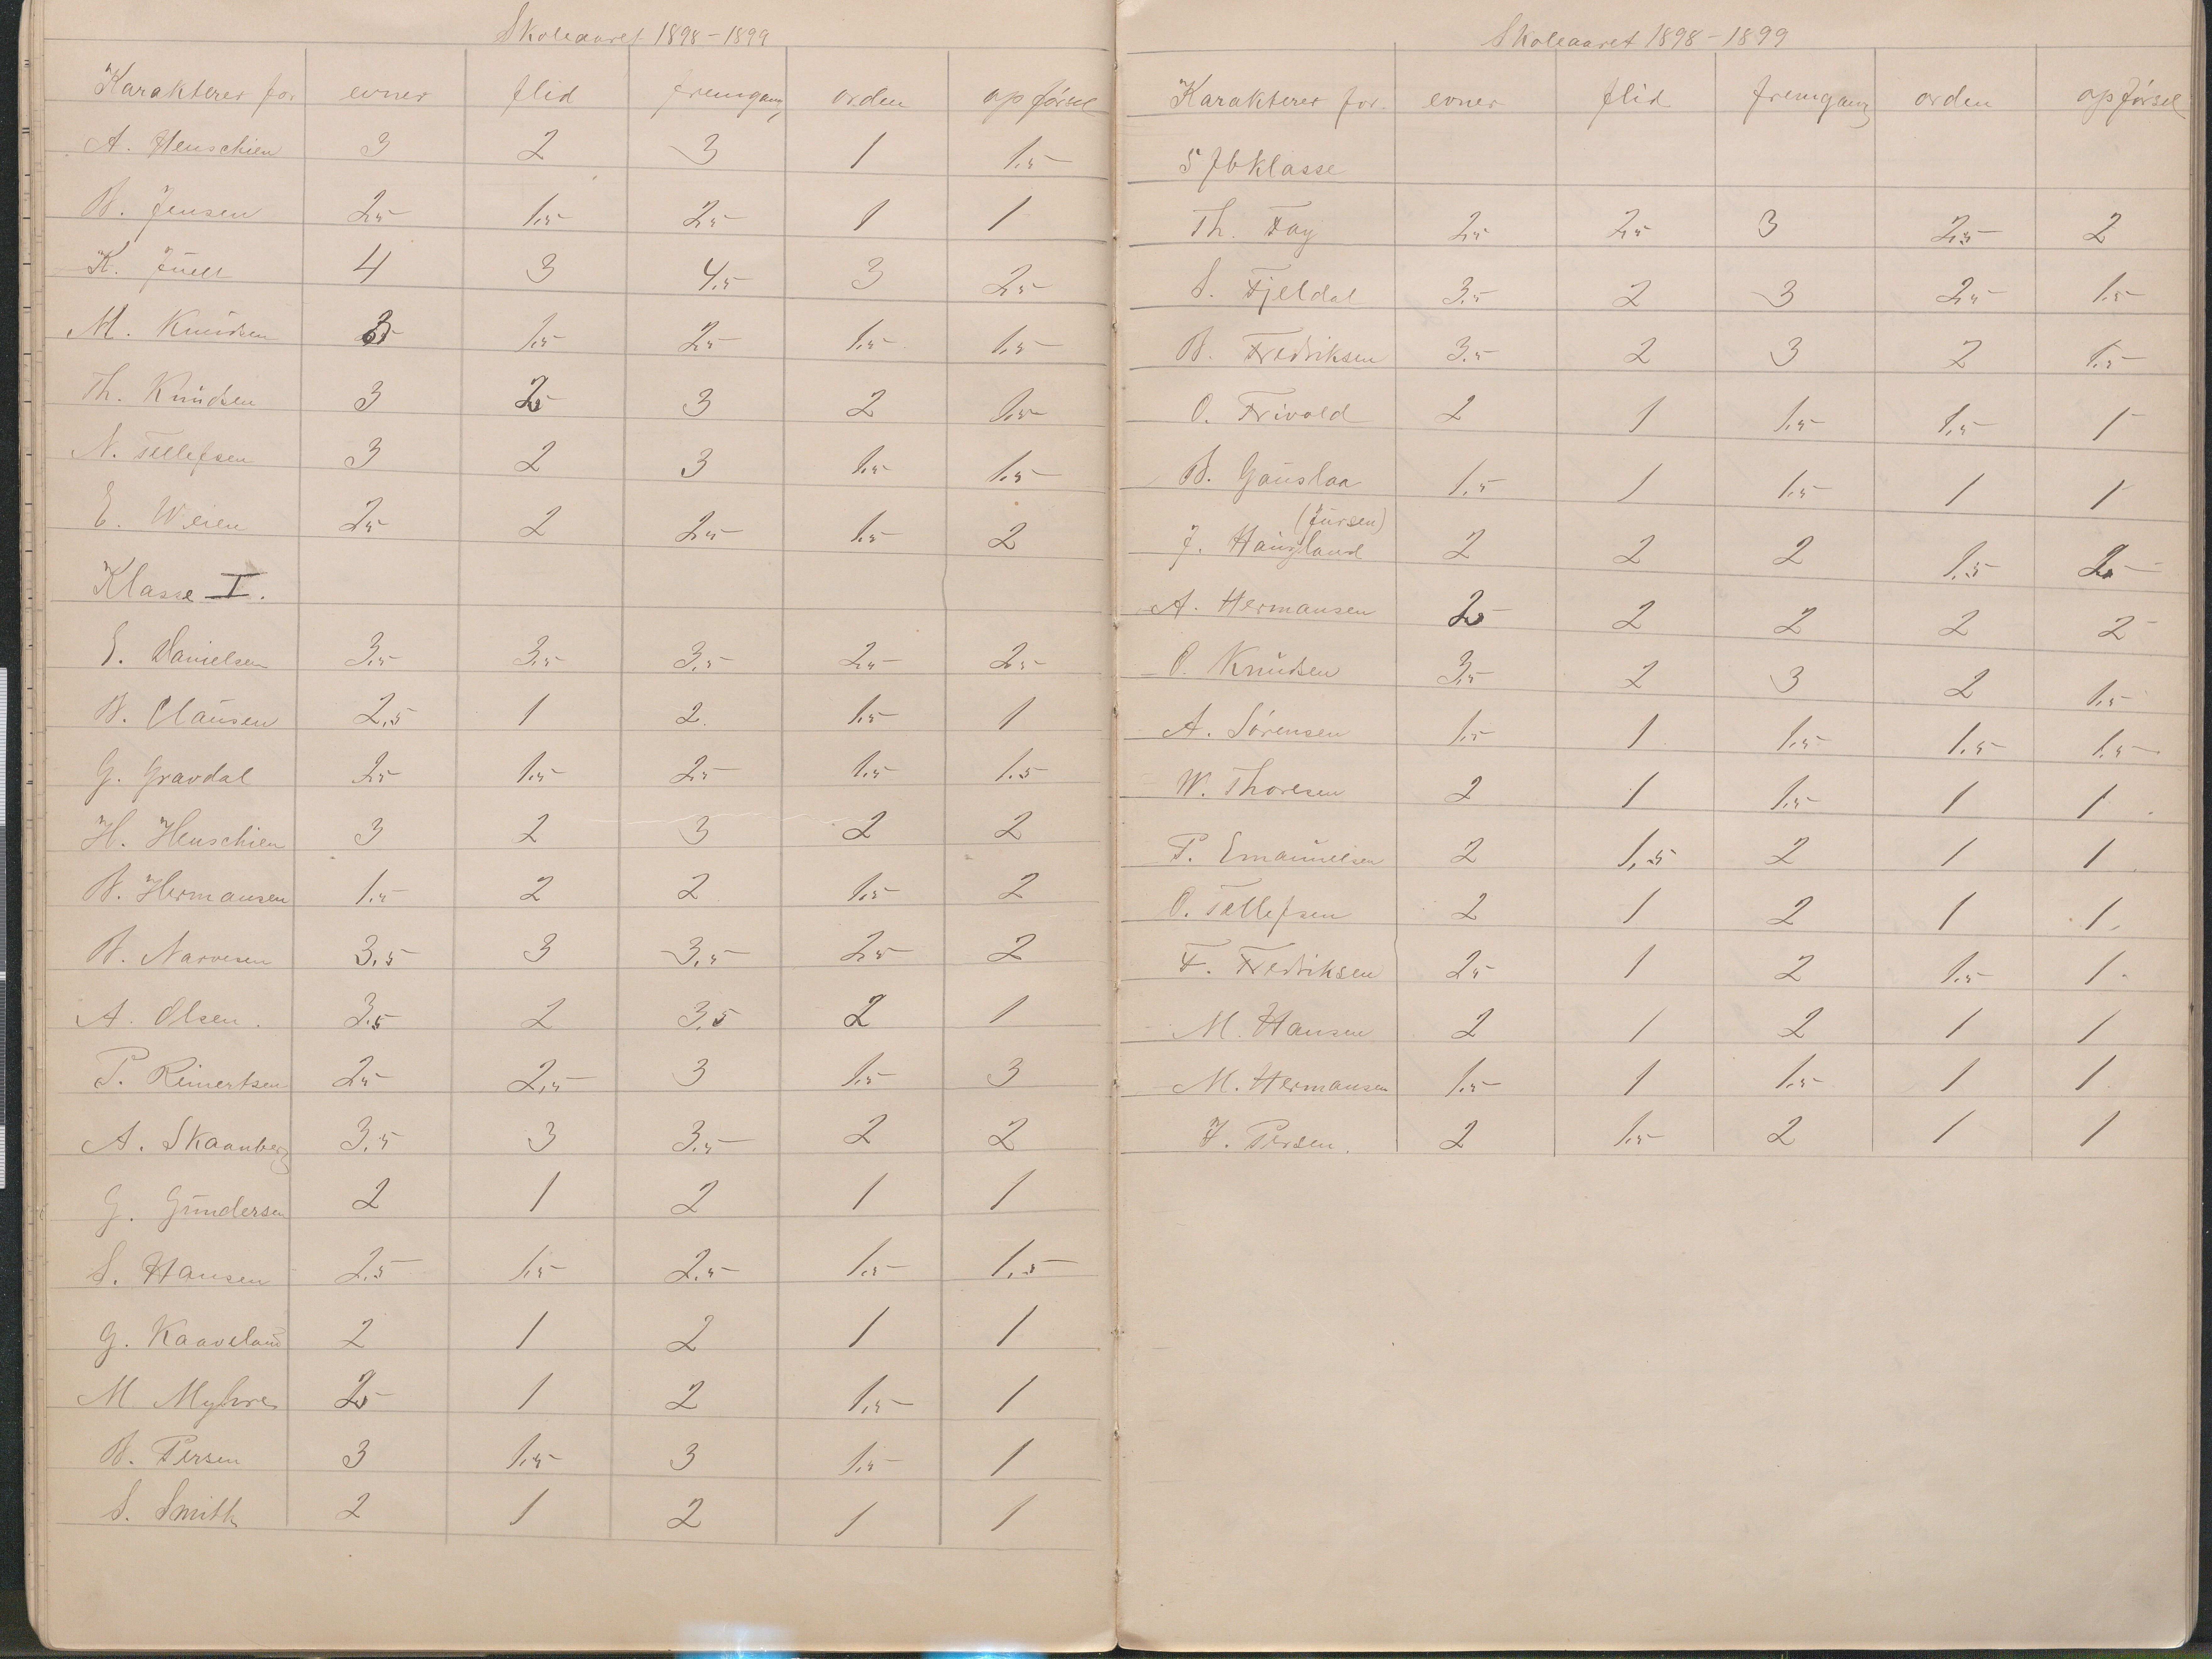 Skoleaaret 1898-1899
Karakterer for evner flid fremgang orden opførsel
A. Henschien 3 2 3 1 1.5
B. Jensen 2.5 1.5 2.5 1 1
K. Juell 4 3 4.5 3 2.5
M. Knudsen 1.5 2.5 1.5 1.5
Th. Knudsen 3 2.5 3 2 1.5
N. Tellefsen 3 2 3 1.5 1.5
E. Weien 2.5 2 2.5 1.5 2
Klasse I.
E. Danielsen 3.5 3.5 3.5 2.5 2.5
B. Clausen 2.5 1 2. 1.5 1
G. Gravdal 2.5 1.5 2.5 1.5 1.5
H. Henschien 3 2 3 2 2
B. Hermansen 1.5 2 2 1.5 2
B. Narvesen 3.5 3 3.5 2.5 2
A. Olsen. 3.5 2 3.5 2 1
P. Reinertsen 2.5 2.5 3 1.5 3
A. Skaanberg 3.5 3 3.5 2 2
G. Gundersen 2 1 2 1 1
S. Hansen 2.5 1.5 2.5 1.5 1.5
G. Kaaveland 2 1 2 1 1
M Myhre 2.5 1 2 1.5 1
B. Persen 3 1.5 3 1.5 1
S. Smith 2 1 2 1 1
Skoleaaret 1898-1899
Karakterer for. evner flid fremgang orden opførsel
5 fbklasse
Th. Fay 2.5 2.5 3 2.5 2
S. Fjeldal 3.5 2 3 2.5 1.5
B. Fredriksen 3.5 2 3 2 1.5
O. Frivold 2 1 1.5 1.5 1
B. Gauslaa 1.5 1 1.5 1 1
(Jursen)
J. Haugland 2 2 2 1.5 2.5
A. Hermansen 2.5 2 2 2 2
O. Knudsen 3.5 2 3 2 1.5
A. Sørensen 1.5 1 1.5 1.5 1.5
W. Thoresen 2 1 1.5 1 1
P. Emanuelsen 2 1.5 2 1 1
O. Tellefsen 2 1 2 1 1
F. Fredriksen 2.5 1 2 1.5 1
M. Hansen 2 1 2 1 1
M. Hermansen 1.5 1 1.5 1 1
J. Persen. 2 1.5 2 1 1